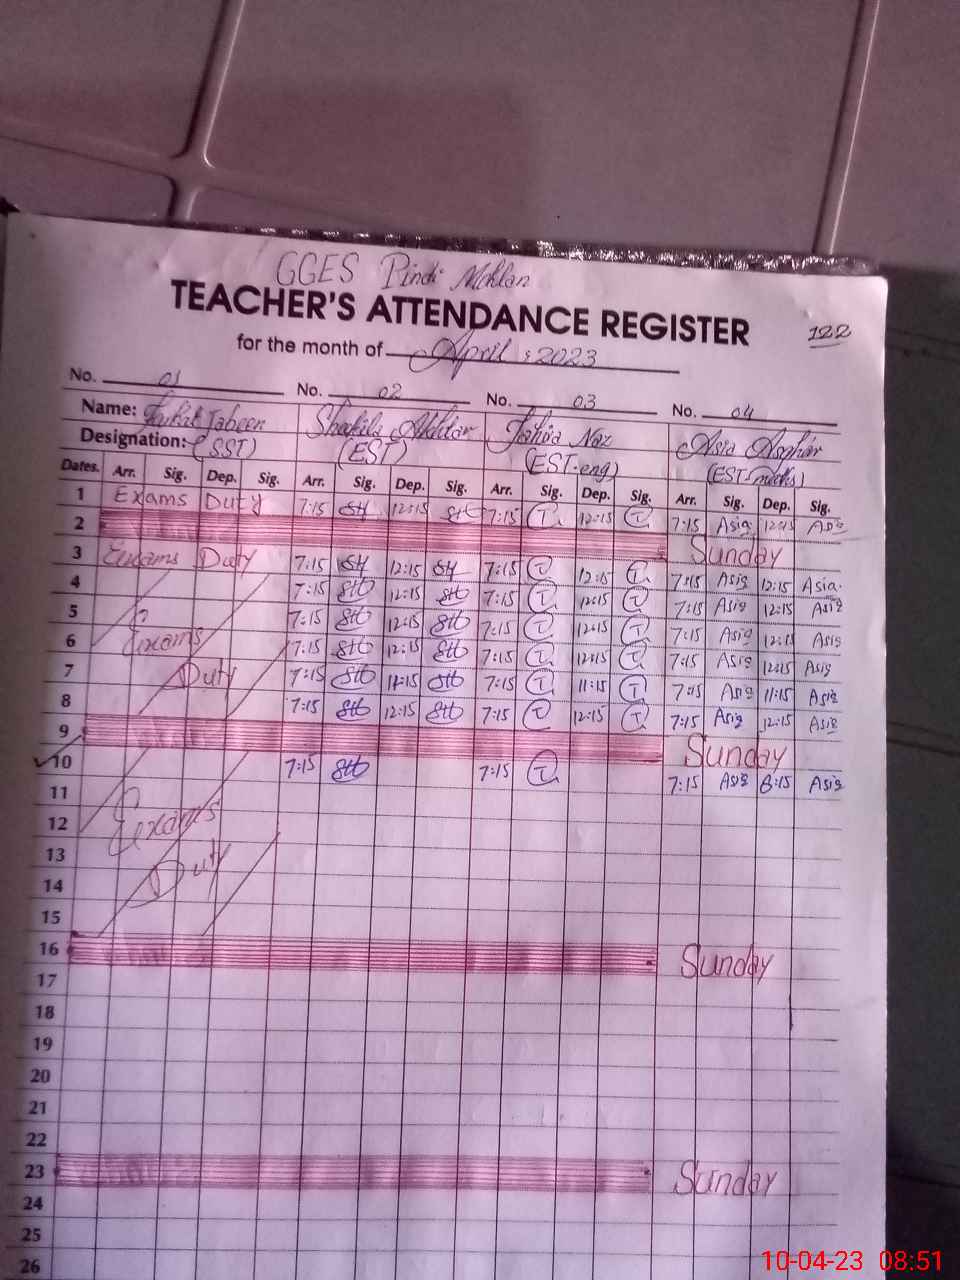 GGES Pindi Mohlan
TEACHER'S ATTENDANCE REGISTER 122
for the month of April : 2023
No. 01 No. 02 No. 03 No. 04
Name: Jabeen Shakila Akhtar Tahira Naz Asia Asghar
Designation: (SST) (EST) (EST-eng) (EST-maths)
Dates. Arr. Sig. Dep. Sig. Arr. Sig. Dep. Sig. Arr. Sig. Dep. Sig. Arr. Sig. Dep. Sig.
1 Exams Duty 7:15 12:15 7:15 T 12:15 T 7:15 Asia 12:15 Asia
2 Sunday
3 Exams Duty 7:15 12:15 7:15 T 12:15 T 7:15 Asia 12:15 Asia
4 7:15 12:15 7:15 T 12:15 T 7:15 Asia 12:15 Asia
5 7:15 12:15 7:15 T 12:15 T 7:15 Asia 12:15 Asia
6 Exams 7:15 12:15 7:15 T 12:15 T 7:15 Asia 12:15 Asia
7 Duty 7:15 11:15 7:15 T 11:15 T 7:15 Asia 11:15 Asia
8 7:15 12:15 7:15 T 12:15 T 7:15 Asia 12:15 Asia
9 Sunday
10 7:15 7:15 T 7:15 Asia 8:15 Asia
11
12 Exams
13
14 Duty
15
16 Sunday
17
18
19
20
21
22
23 Sunday
24
25
26
10-04-23 08:51